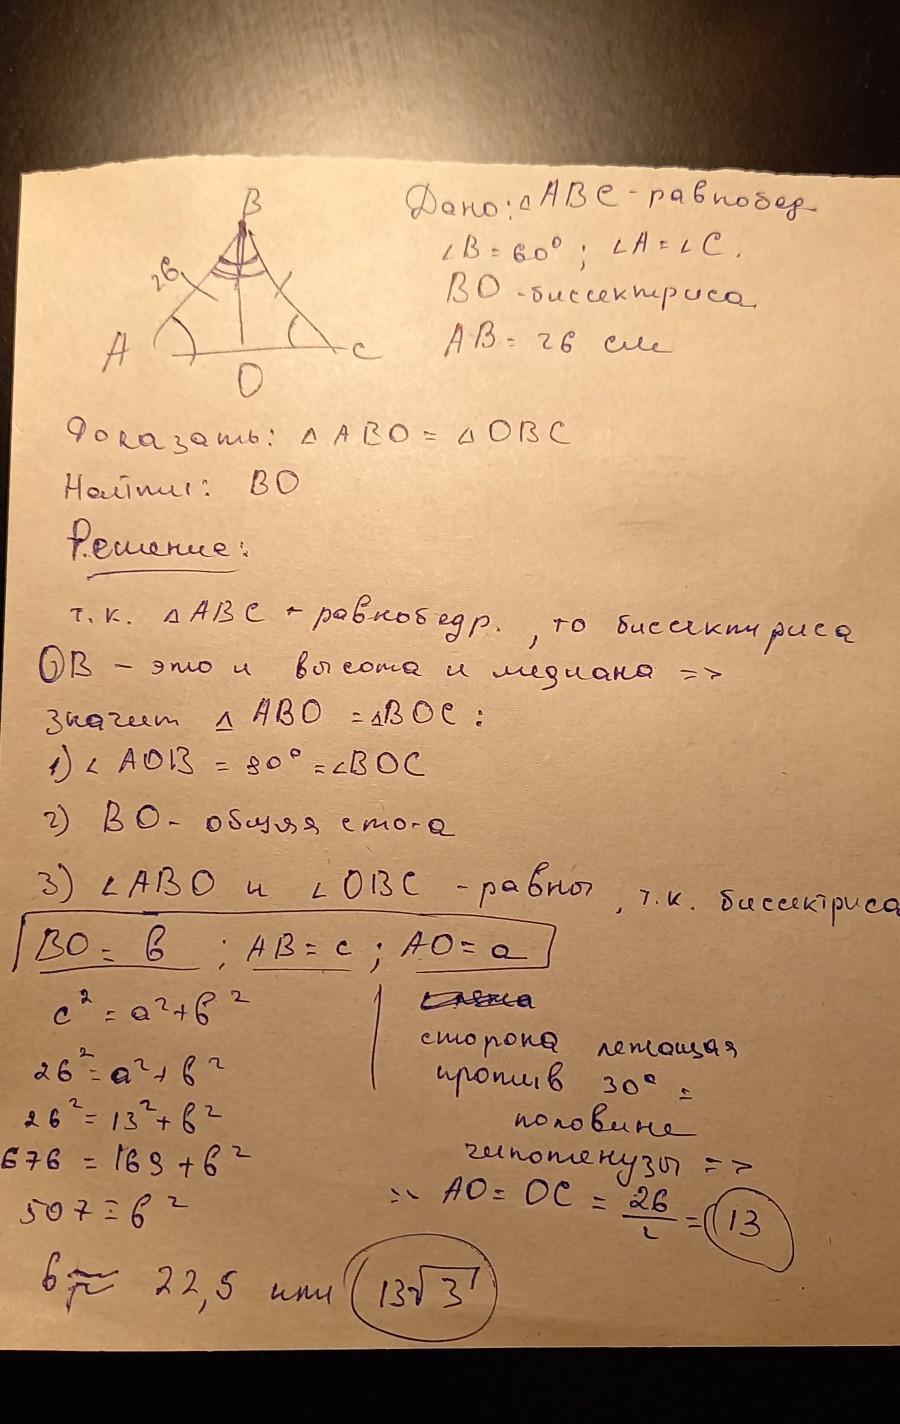 B
Дано: △ABC - равнобед
∠B = 60° ; ∠A = ∠C.
BO - биссектриса
AB = 26 см
26
A
C
O
Доказать: △ABO = △OBC
Найти: BO
Решение:
т.к. △ABC - равнобедр., то биссектриса
OB - это и высота и медиана =>
значит △ABO = △BOC:
1) ∠AOB = 90° = ∠BOC
2) BO - общая сто-а
3) ∠ABO и ∠OBC - равны, т.к. биссектриса
BO = b ; AB = c ; AO = a
c² = a² + b²
26² = a² + b²
26² = 13² + b²
676 = 169 + b²
507 = b²
b ≈ 22,5 или 13√3
сторона лежащая
против 30° =
половине
гипотенузы =>
=> AO = OC = 26/2 = 13